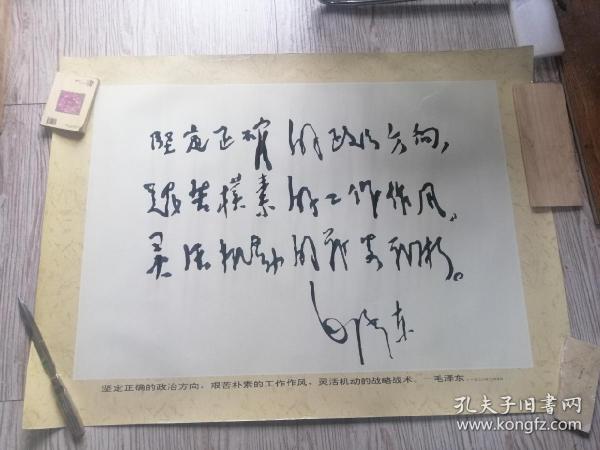 坚定正确的政治方向，
艰苦樸素的工作作风，
灵活机动的战略战术。
毛泽东
坚定正确的政治方向，艰苦朴素的工作作风，灵活机动的战略战术。 毛泽东
孔夫子旧书网
www.kongfz.com